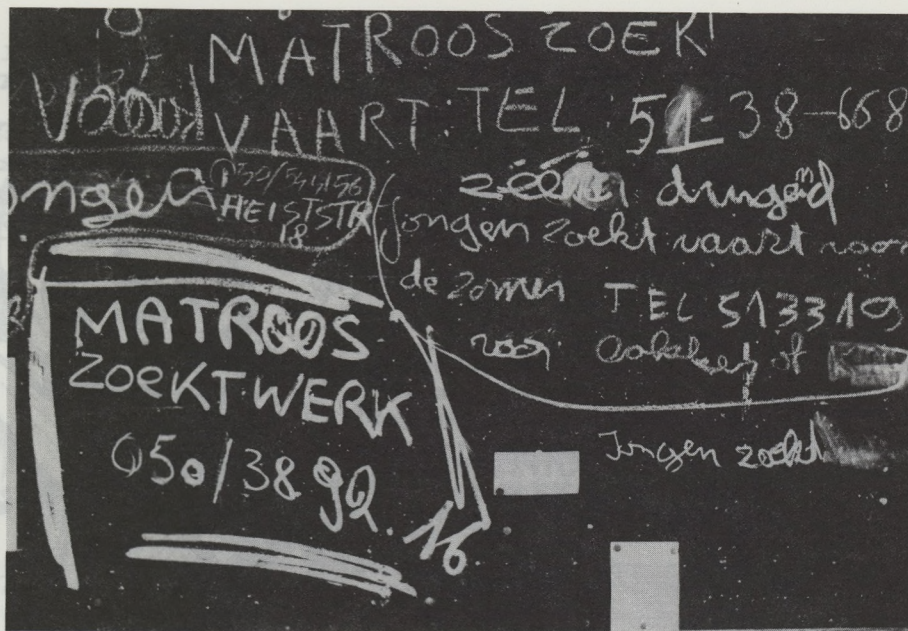 MATROOS ZOEKT
VAART: TEL 51-38-668
050/541156
HEISTSTR
18
dringend
jongen zoekt vaart voor
de zomer TEL 513319
voor of
MATROOS
ZOEKT WERK
050/38 92
16
Jongen zoekt